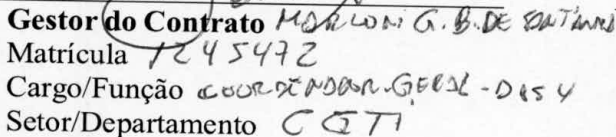 Gestor do Contrato MARLONI G. B. DE SANTANA
Matrícula 1245472
Cargo/Função COORDENADOR-GERAL - DAS 4
Setor/Departamento CGTI